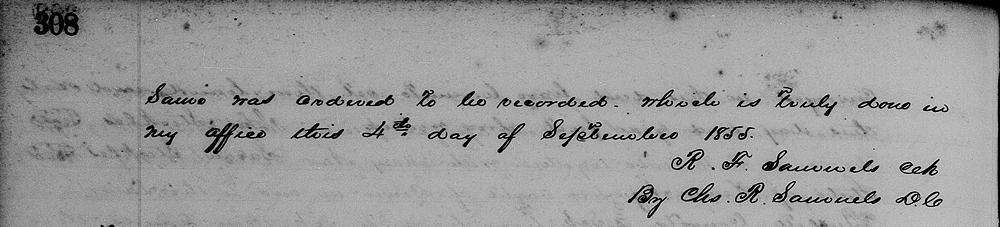 308
Same was ordered to be recorded. which is truly done in
my office this 4th day of September 1855.
R. F. Samuels Clk
By Chs. R. Samuels D.C